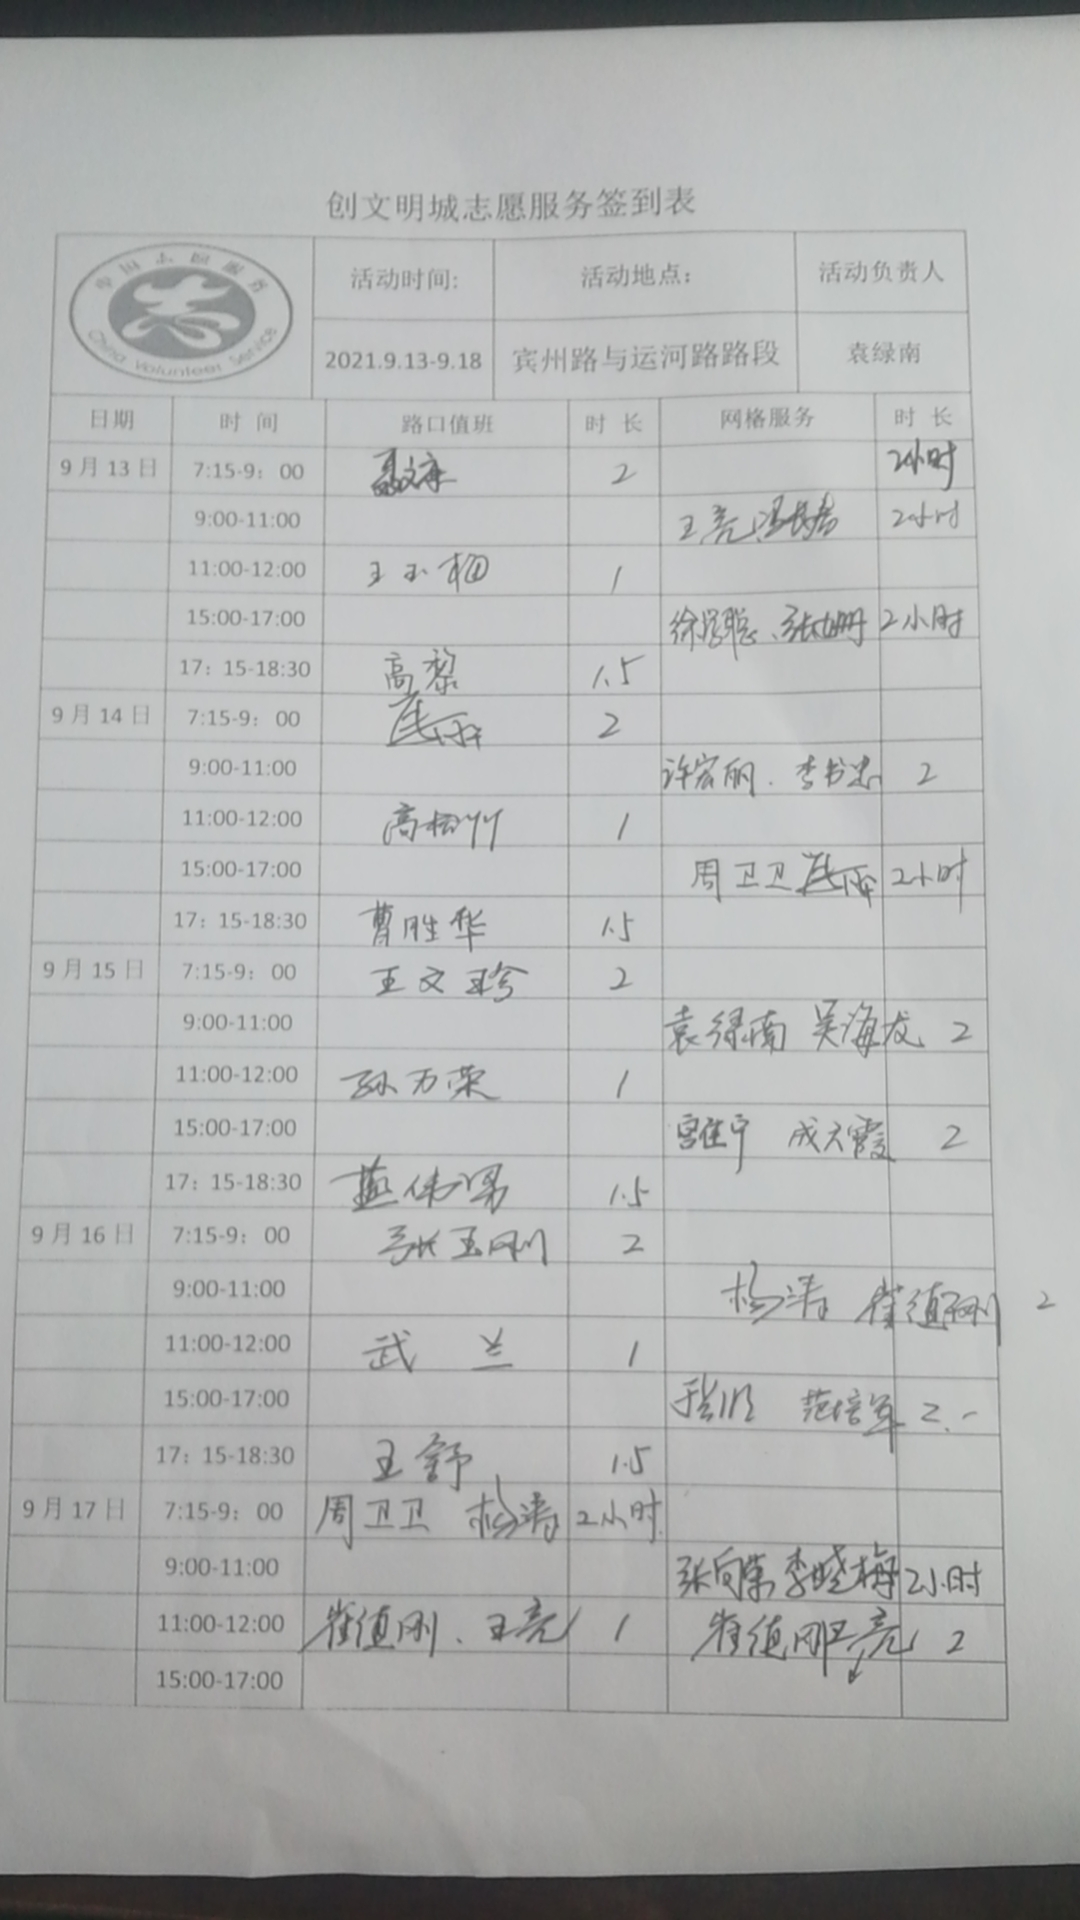 创文明城志愿服务签到表
中国志愿服务
China Volunteer Service
活动时间: 活动地点: 活动负责人
2021.9.13-9.18 宾州路与运河路路段 袁绿南
日期 时 间 路口值班 时 长 网格服务 时 长
9月13日 7:15-9：00 2 2小时
9:00-11:00 王亮 2小时
11:00-12:00 王玉相 1
15:00-17:00 2小时
17：15-18:30 高黎 1.5
9月14日 7:15-9：00 2
9:00-11:00 许宏丽. 李书忠 2
11:00-12:00 高松竹 1
15:00-17:00 周卫卫 2小时
17：15-18:30 曹胜华 1.5
9月15日 7:15-9：00 王文珍 2
9:00-11:00 袁绿南 吴海龙 2
11:00-12:00 孙万荣 1
15:00-17:00 宫佳宁 成文霞 2
17：15-18:30 燕伟勇 1.5
9月16日 7:15-9：00 张玉刚 2
9:00-11:00 杨涛 崔值刚 2
11:00-12:00 武 兰 1
15:00-17:00 范培军 2
17：15-18:30 王舒 1.5
9月17日 7:15-9：00 周卫卫 杨涛 2小时
9:00-11:00 张向荣 李晓梅 2小时
11:00-12:00 崔值刚、王亮 1 崔值刚 王亮 2
15:00-17:00